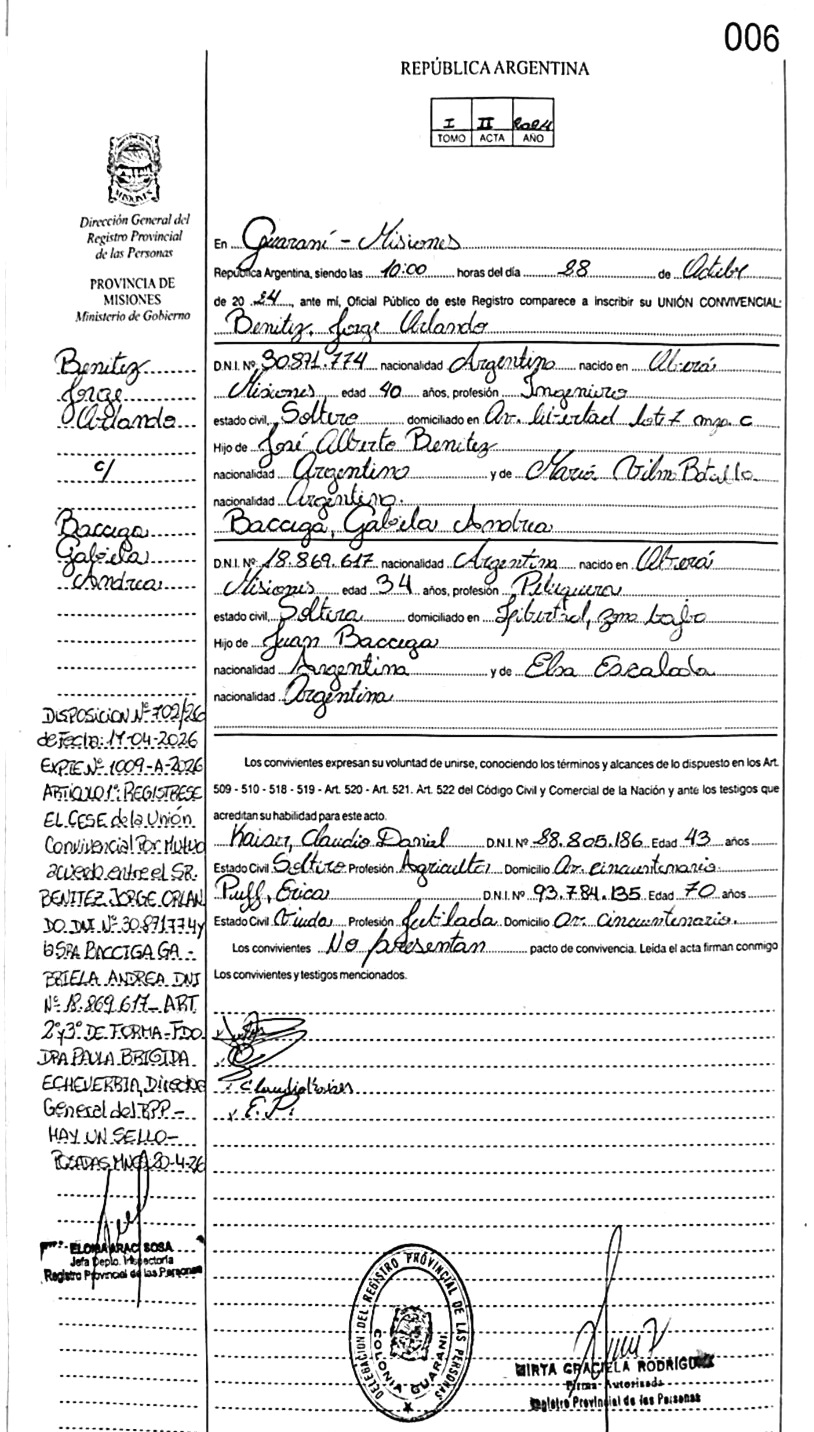 006
REPÚBLICA ARGENTINA
I II 2024
TOMO ACTA AÑO
MISIONES
Dirección General del
Registro Provincial
de las Personas
PROVINCIA DE
MISIONES
Ministerio de Gobierno
En Guaraní - Misiones
República Argentina, siendo las 10:00 horas del día 28 de Octubre
de 20 24, ante mí, Oficial Público de este Registro comparece a inscribir su UNIÓN CONVIVENCIAL:
Benitez, Jorge Orlando
D.N.I. Nº 30.871.774 nacionalidad Argentino nacido en Oberá
Misiones edad 40 años, profesión Ingeniero
estado civil, Soltero domiciliado en Av. Libertad lote 7 mza. C
Hijo de José Alberto Benitez
nacionalidad Argentino y de María Vilm
nacionalidad Argentino.
Bacciga, Gabriela Andrea
D.N.I. Nº 18.869.617 nacionalidad Argentina nacido en Oberá
Misiones edad 34 años, profesión Peluquera
estado civil, Soltera domiciliado en Libertad, zona bajo
Hijo de Juan Bacciga
nacionalidad Argentina y de Elsa Escalada
nacionalidad Argentina
Los convivientes expresan su voluntad de unirse, conociendo los términos y alcances de lo dispuesto en los Art.
509 - 510 - 518 - 519 - Art. 520 - Art. 521. Art. 522 del Código Civil y Comercial de la Nación y ante los testigos que
acreditan su habilidad para este acto.
Kaiser, Claudio Daniel D.N.I. Nº 28.805.186 Edad 43 años
Estado Civil Soltero Profesión Agricultor Domicilio Av. cincuentenario.
Puff, Erica D.N.I. Nº 93.784.135 Edad 70 años
Estado Civil Viuda Profesión Jubilada Domicilio Av. Cincuentenario.
Los convivientes No presentan pacto de convivencia. Leída el acta firman conmigo
Los convivientes y testigos mencionados.
Claudio Kaiser
E. P.
Benitez
Jorge
Orlando
c/
Bacciga
Gabriela
Andrea
DISPOSICION Nº 702/26
de Fecha: 17-04-2026
EXPTE Nº 1009-A-2026
ARTICULO 1º: REGISTRESE
EL CESE de la Unión
Convivencial Por Mutuo
acuerdo entre el SR.
BENITEZ JORGE ORLAN
DO. DNI. Nº 30.871.774 y
la SRA BACCIGA GA-
BRIELA ANDREA DNI
Nº 18.869.617- ART.
2º y 3º DE FORMA-FDO
DRA PAULA BRIGIDA
ECHEVERRIA, Directora
General del RPP-
HAY UN SELLO-
POSADAS, MNES 20-4-26
ARACI SOSA
Jefa Depto. Inspectoría
Registro Provincial de las Personas
DELEGACION DEL REGISTRO PROVINCIAL DE LAS PERSONAS
COLONIA GUARANI
MIRTA GRACIELA RODRIGUEZ
Firma Autorizada
Registro Provincial de las Personas